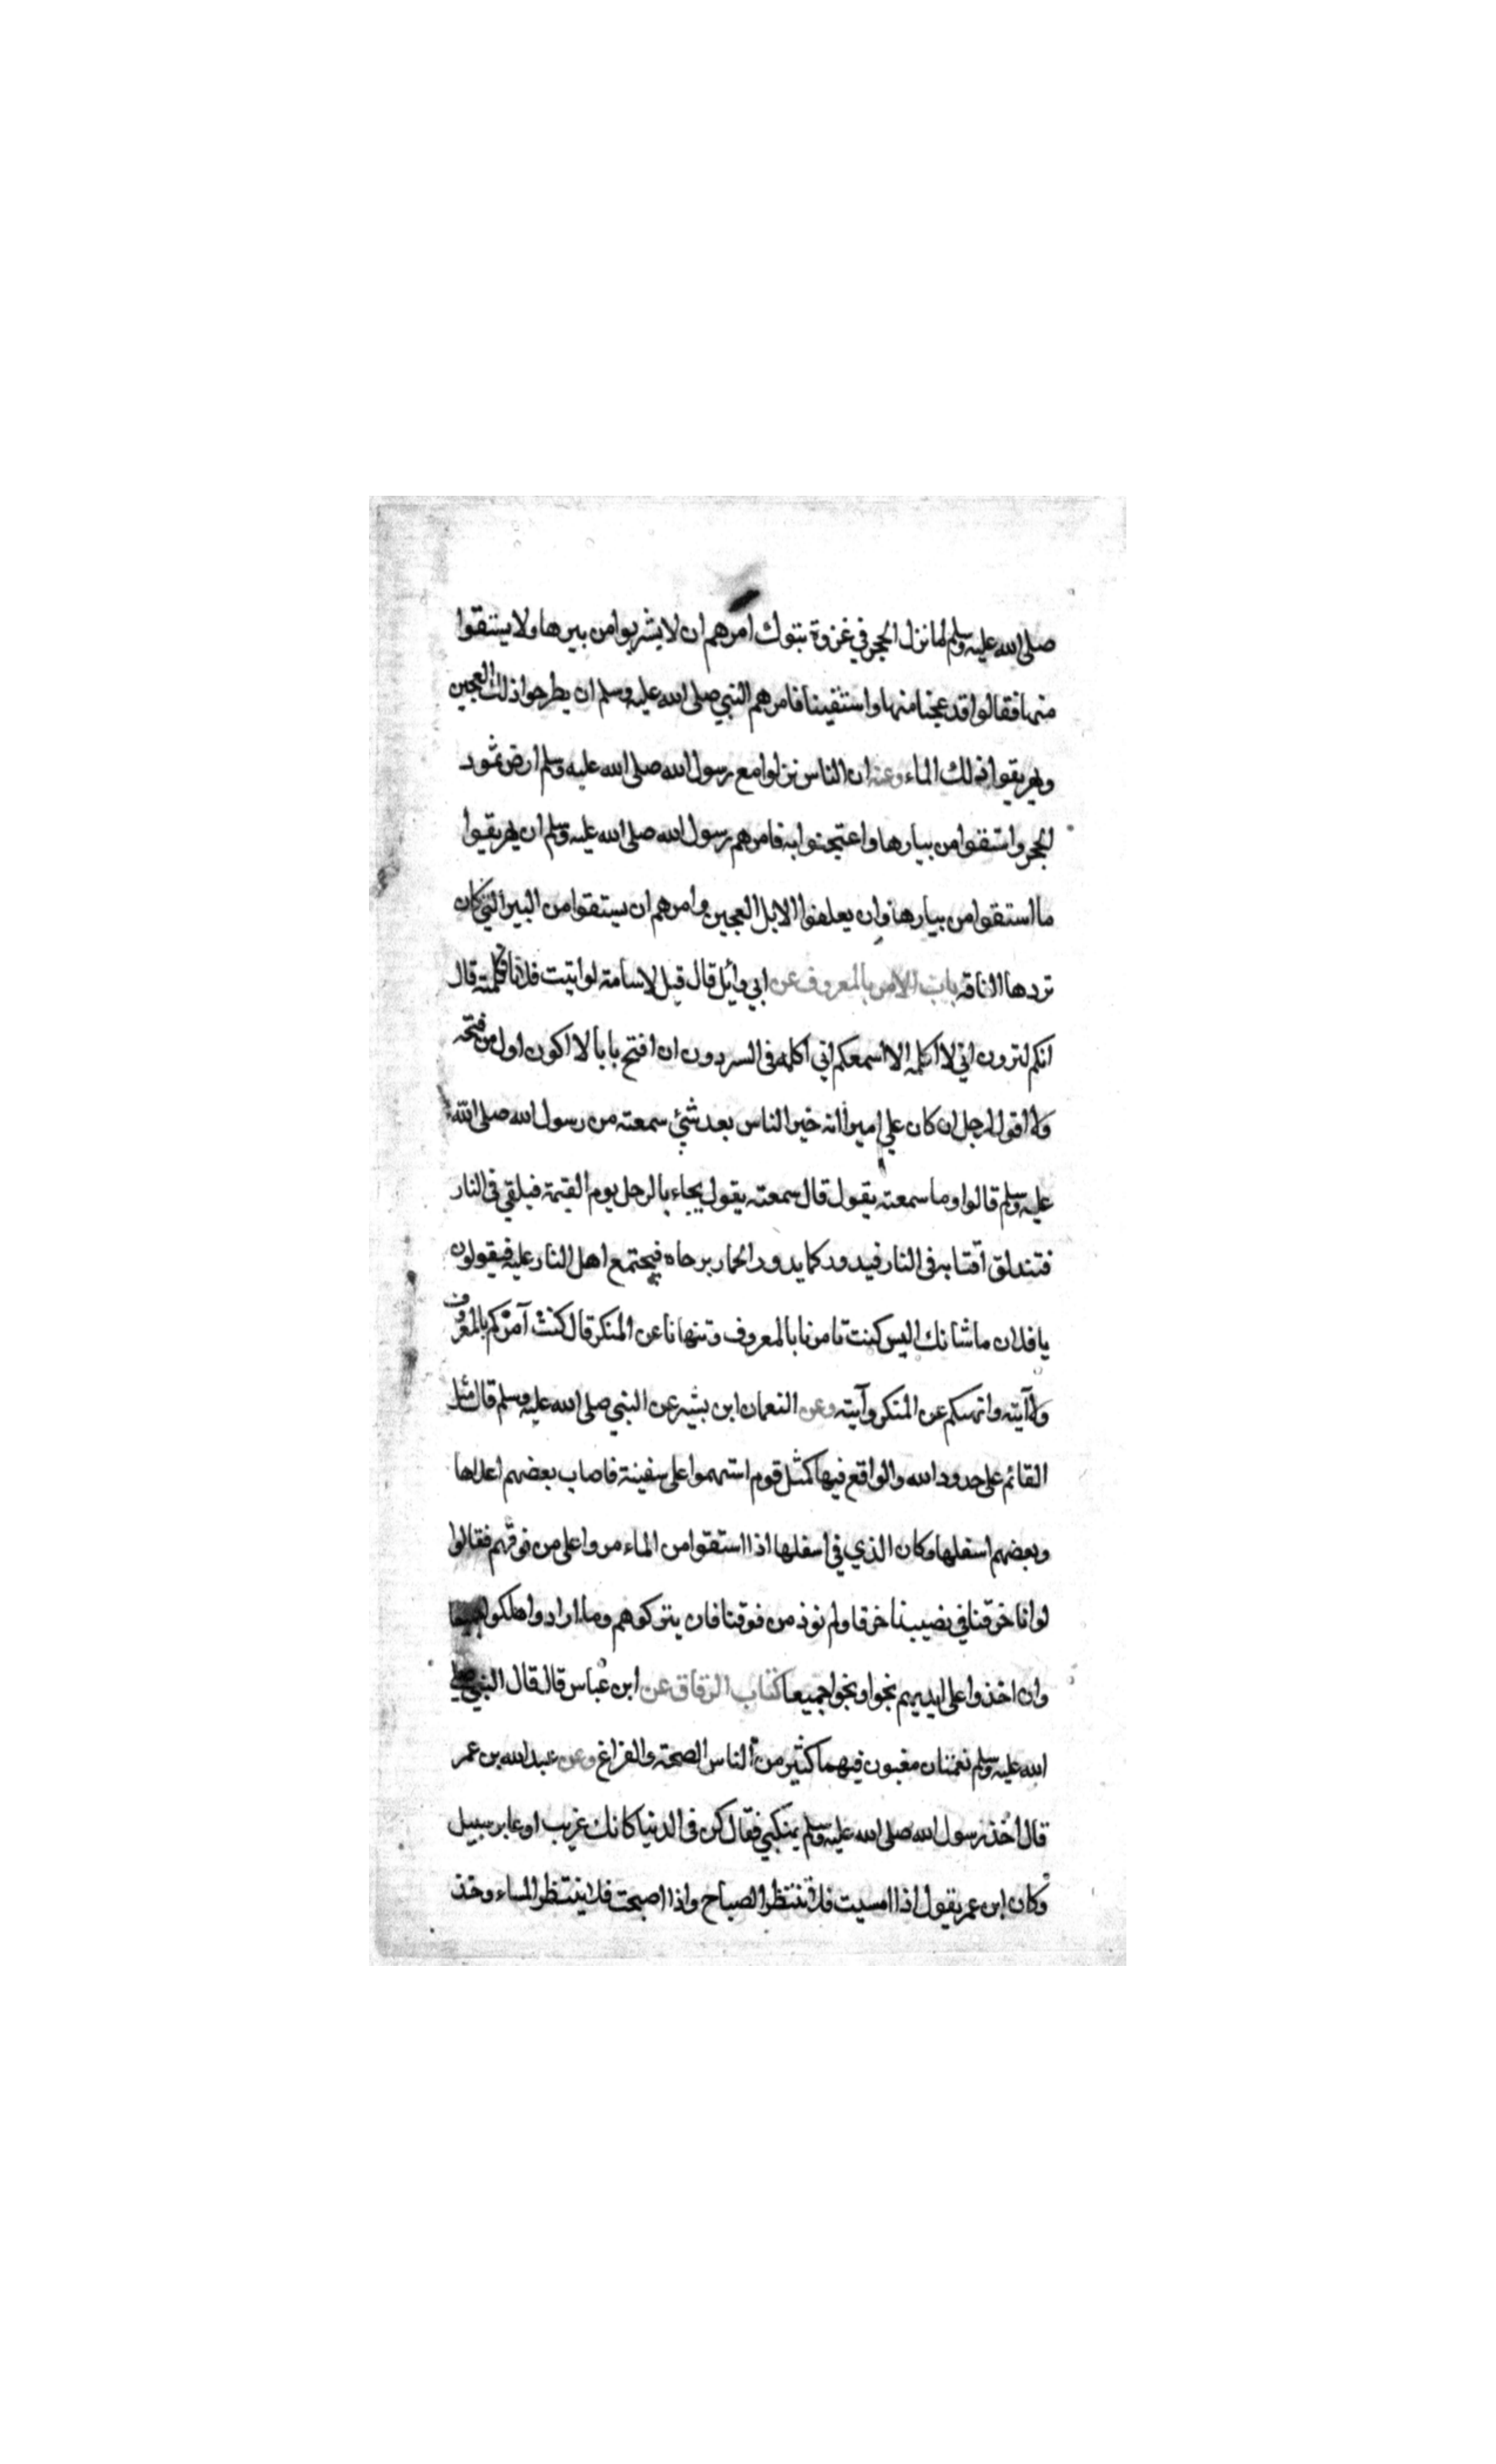 صلى الله عليه وسلم لما نزل الحجر في غزوة تبوك امرهم ان لا يشربوا من بيرها ولا يستقوا
منها فقالوا قد عجنا منها واستقينا فامرهم النبي صلى الله عليه وسلم ان يطرحوا ذلك العجين
ويهريقوا ذلك الماء وعنه ان الناس نزلوا مع رسول الله صلى الله عليه وسلم ارض ثمود
الحجر واستقوا من بيارها واعتجنوا به فامرهم رسول الله صلى الله عليه وسلم ان يهريقوا
ما استقوا من بيارها وان يعلفوا الابل العجين وامرهم ان يستقوا من البير التي كان
تردها الناقه باب الامر بالمعروف عن ابي وائل قال قيل لاسامة لو اتيت فلانا فكلمته قال
انكم لترون اني لا اكلمه الا اسمعكم اني اكلمه في السر دون ان افتح بابا لا اكون اول من فتحه
ولا اقول لرجل ان كان علي اميرا انه خير الناس بعد شئ سمعته من رسول الله صلى الله
عليه وسلم قالوا وما سمعته يقول قال سمعته يقول يجاء بالرجل يوم القيمة فيلقي في النار
فتندلق اقتابه في النار فيدور كما يدور الحمار برحاه فيجتمع اهل النار عليه فيقولون
يا فلان ما شانك اليس كنت تامرنا بالمعروف وتنهانا عن المنكر قال كنت آمركم بالمعروف
ولا آتيه وانهيكم عن المنكر وآتيه وعن النعمان ابن بشير عن النبي صلى الله عليه وسلم قال مثل
القائم على حدود الله والواقع فيها كمثل قوم استهموا على سفينة فاصاب بعضهم اعلاها
وبعضهم اسفلها وكان الذي في اسفلها اذا استقوا من الماء مروا على من فوقهم فقالوا
لو انا خرقنا في نصيبنا خرقا ولم نوذ من فوقنا فان يتركوهم وما ارادوا هلكوا جميعا
وان اخذوا على ايديهم نجوا ونجوا جميعا كتاب الرقاق عن ابن عباس قال قال النبي صلى
الله عليه وسلم نعمتان مغبون فيهما كثير من الناس الصحة والفراغ وعن عبد الله بن عمر
قال اخذ رسول الله صلى الله عليه وسلم بمنكبي فقال كن في الدنيا كانك غريب او عابر سبيل
وكان ابن عمر يقول اذا امسيت فلا تنتظر الصباح واذا اصبحت فلا ينتظر المساء وخذ